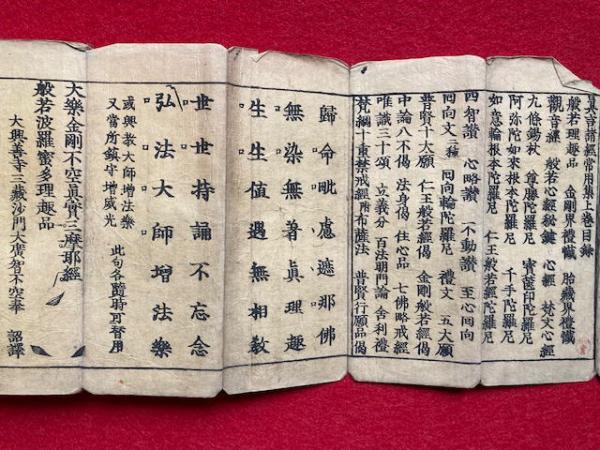 真言諸經常用集上卷目録
般若理趣品 金剛界禮懺 胎藏界禮懺
觀音經 般若心經秘鍵 心經 梵文心經
九條錫杖 尊勝陀羅尼 寶篋印陀羅尼
阿弥陀如來根本陀羅尼 千手陀羅尼
如意輪根本陀羅尼 仁王般若經陀羅尼
四智讃 心略讃 不動讃 至心囘向
囘向文二種 囘向輪陀羅尼 禮文 五大願
普賢十大願 仁王般若經偈 金剛般若經偈
中論八不偈 法身偈 住心品 七佛略戒經
唯識三十頌 立義分 百法明門論 舎利禮
梵網十重禁戒經附布薩法 普賢行願品偈
歸命毗盧遮那佛
無染無著眞理趣
生生值遇無相教
世世持誦不忘念
弘法大師增法樂
或興教大師增法樂
又當所鎮守增威光
此句各臨時可替用
大樂金剛不空眞實三麽耶經
般若波羅蜜多理趣品
大興善寺三藏沙門大廣智不空奉 詔譯